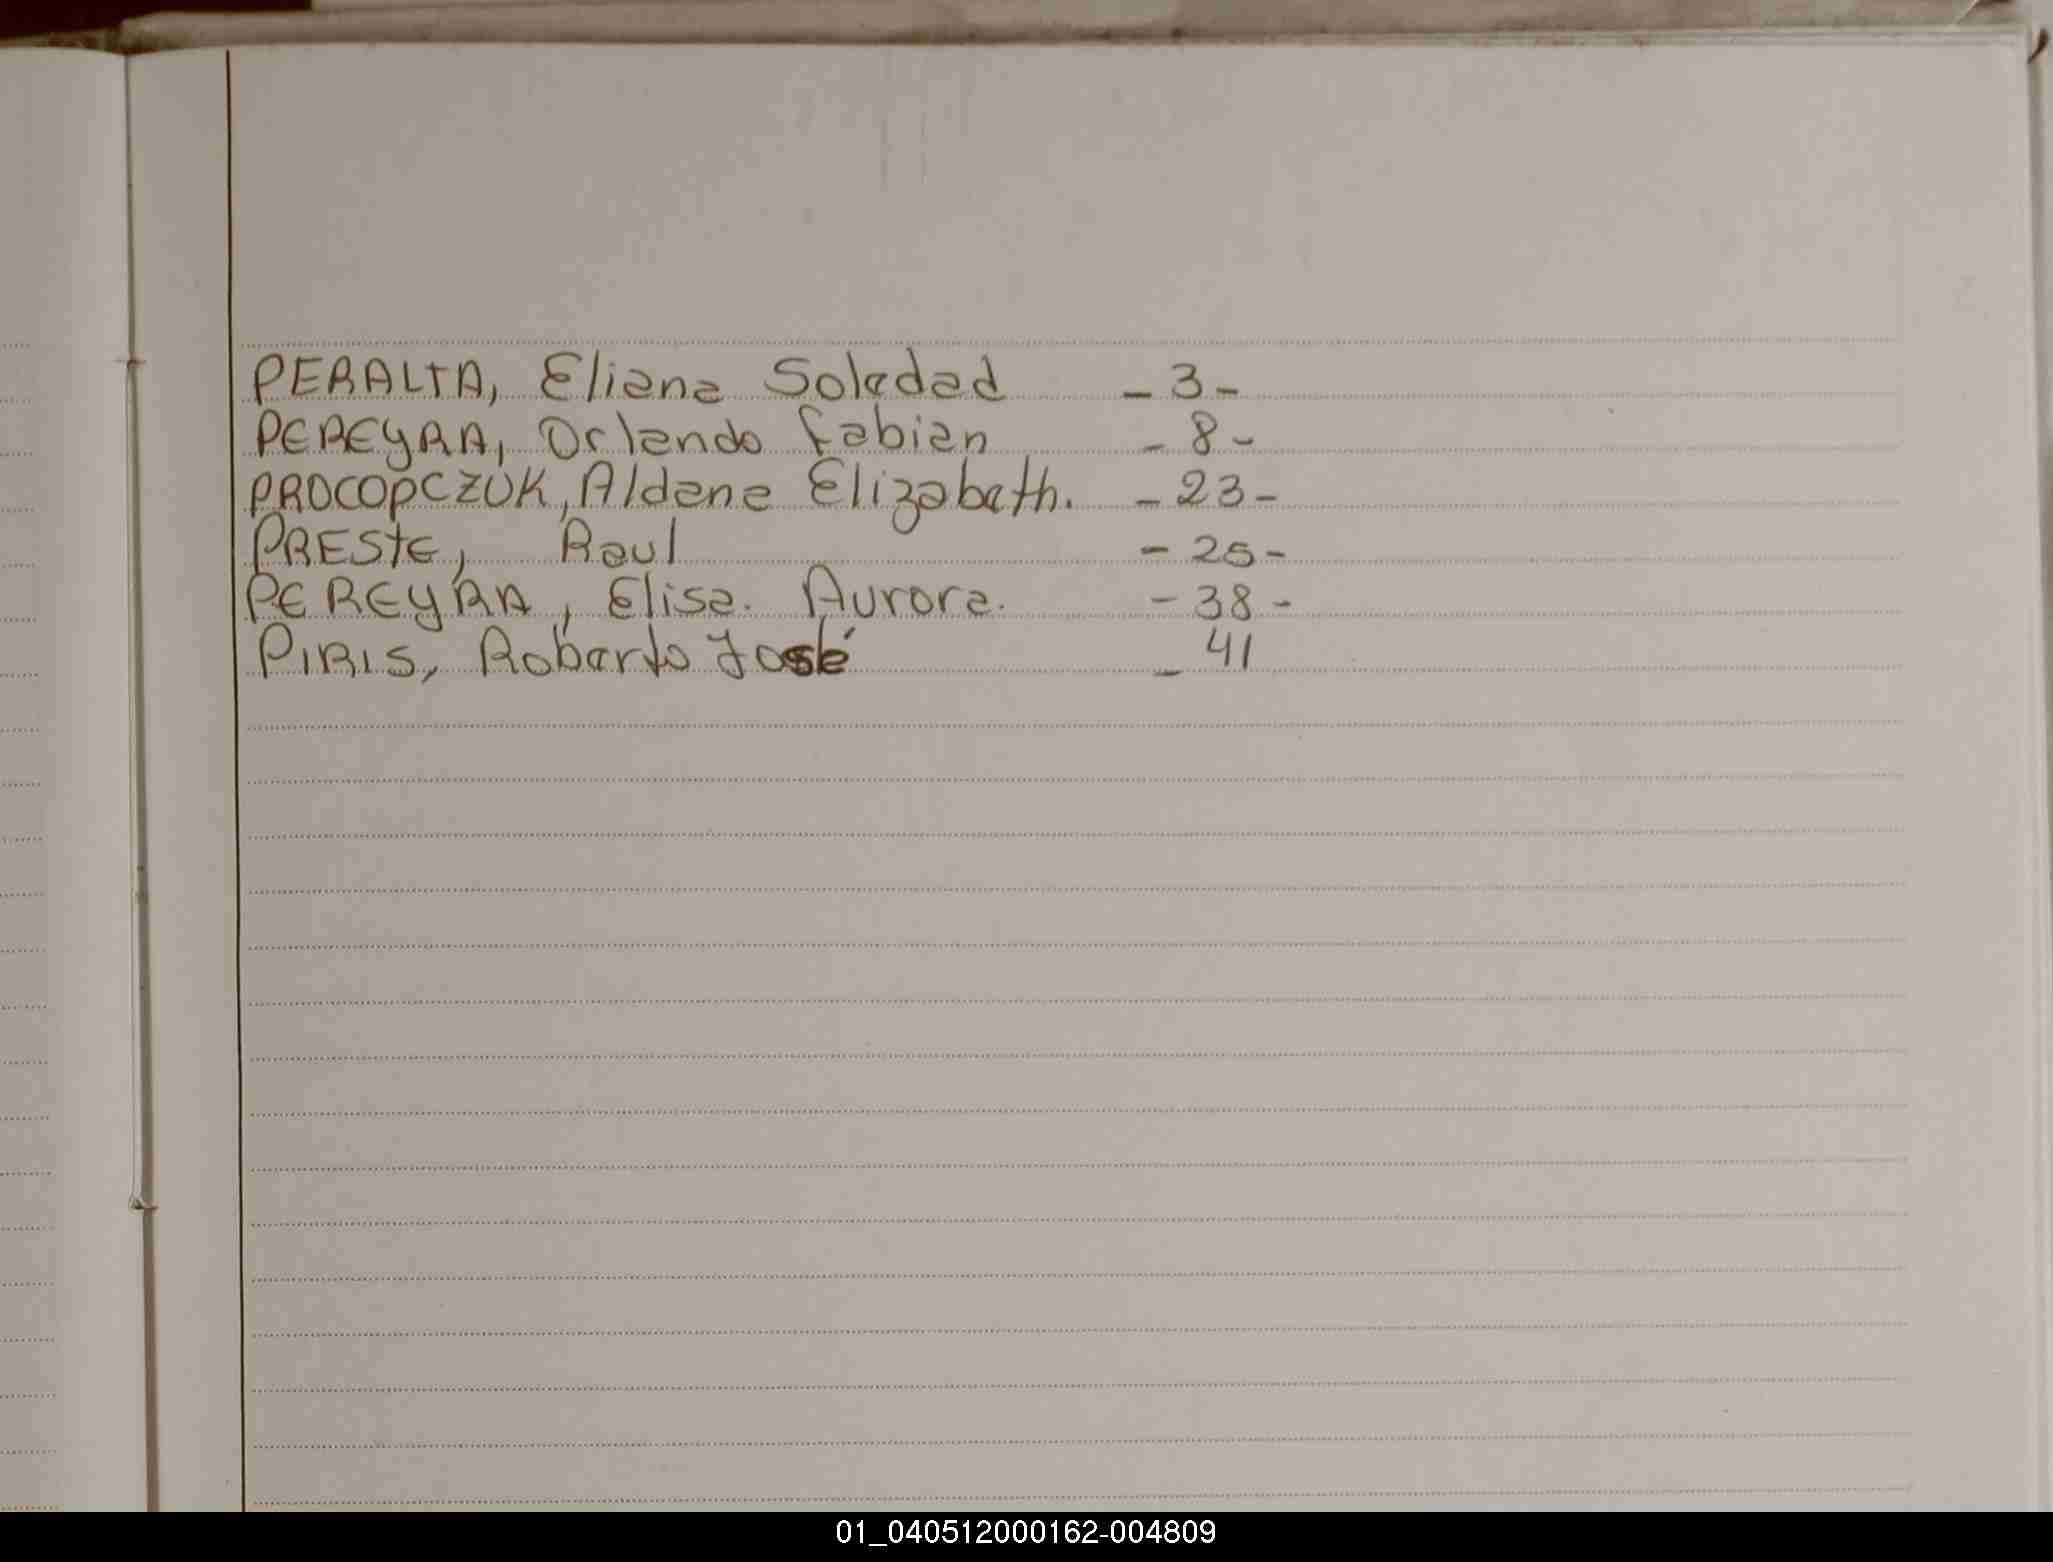 PERALTA, Eliana Soledad - 3 -
PEREYRA, Orlando Fabian - 8 -
PROCOPCZUK, Aldana Elizabeth. - 23 -
PRESTE, Raul - 25 -
PEREYRA, Elisa. Aurora. - 38 -
PIRIS, Roberto José - 41
01_040512000162-004809